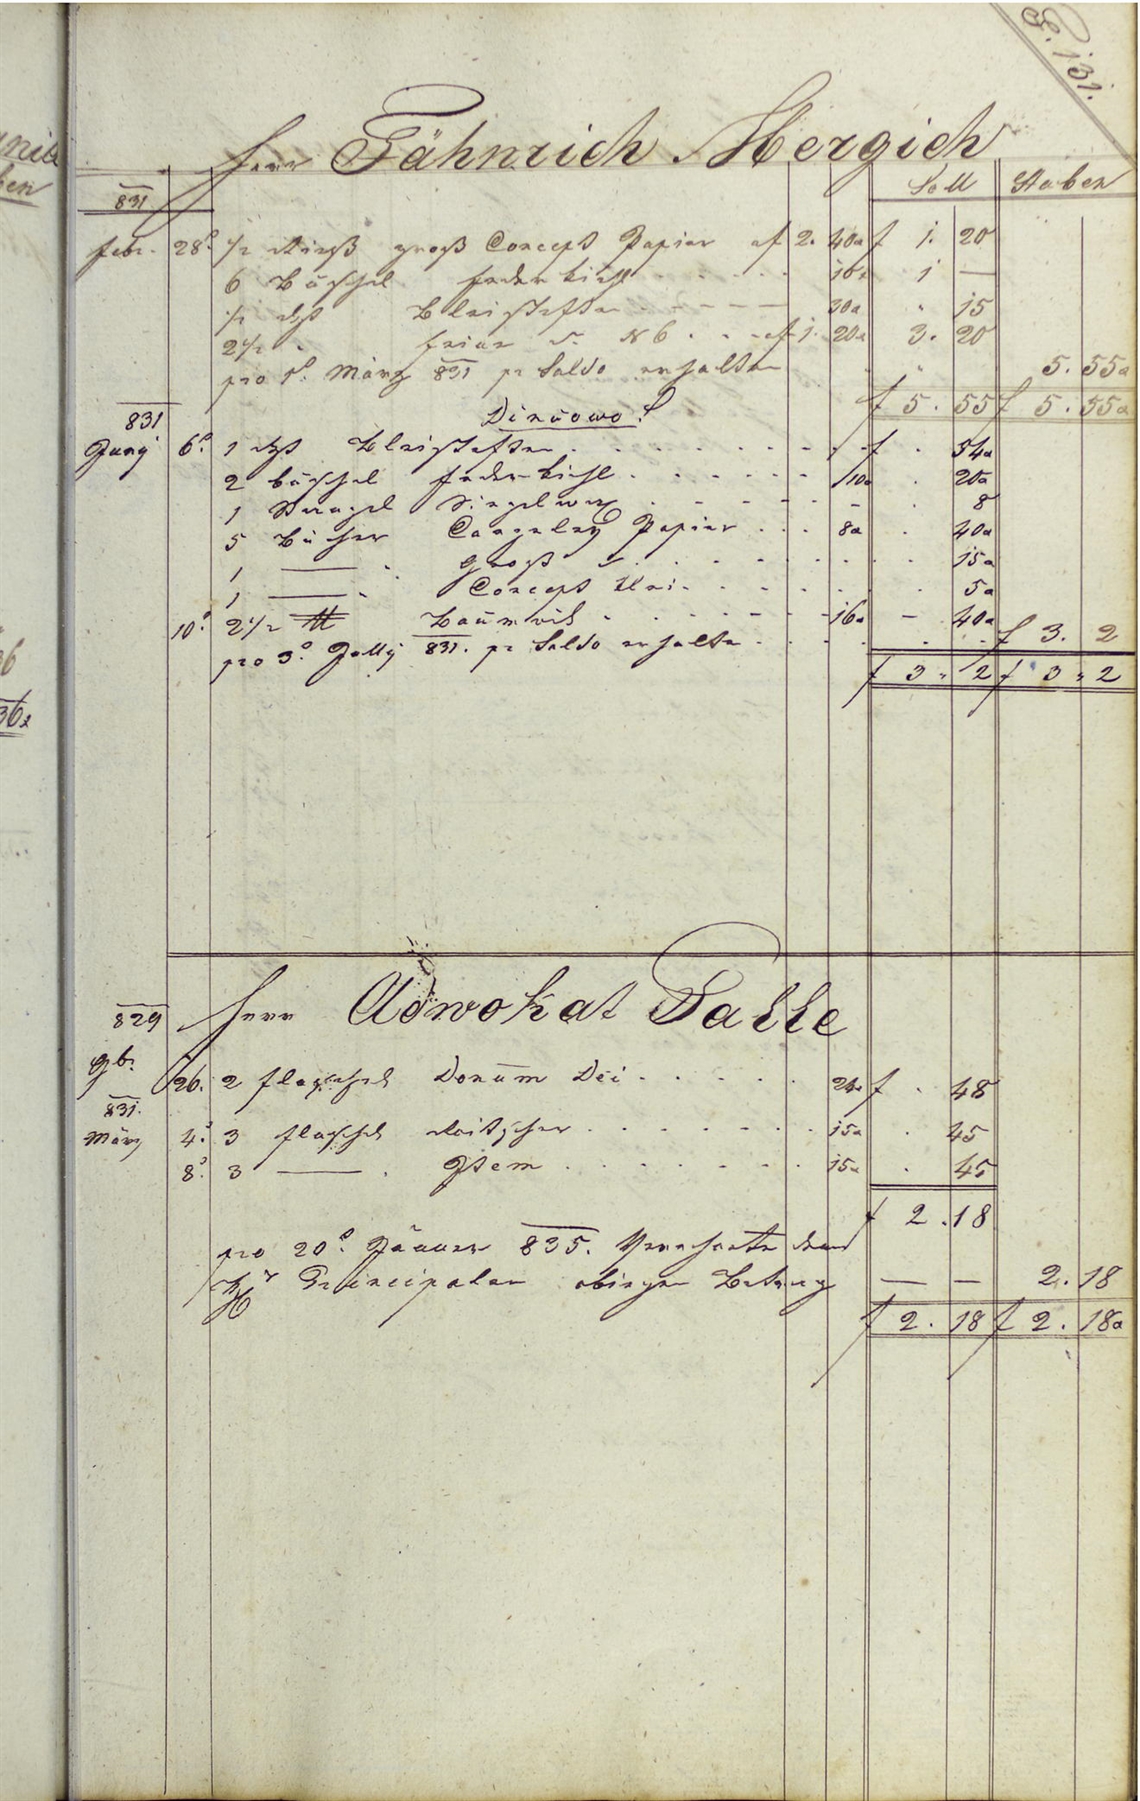 P. 131.
Herr Fähnrich Mergich
Soll Haben
831
Febr. 28° 1/2 Rieß groß Concept Papier af 2. 40x f 1. 20
6 Büschel Federkiehl 10x 1 —
1/2 dzt Bleistiften 30x 15
2 1/2 " No 6 af 1. 20x 3. 20
pro 1° März 831 pr Saldo erhalten 5. 55x
f 5. 55 f 5. 55x
831 Dinuowo
Juny 6° 1 dzt Bleistiften f 54x
2 büschel Federkiehl 10x 20x
1 Stangel Siegelwax - 8
5 Bücher Canzeley Papier 8x 40x
1 — " groß 15x
1 — " Concept 5x
10° 2 1/2 ℔ Baumöhl 16x - 40x
pro 3° July 831. pr Saldo erhalten f 3. 2
f 3. 2 f 3. 2
829 Herr Adwokat
9b. 26. 2 Flaschel Donum Dei 24x f 48
831.
März 4° 3 flaschel 15x 45
8° 3 — Item 15x 45
f 2. 18
pro 20° Jänner 835.
Principalen obigen Betrag — — 2. 18
f 2. 18 f 2. 18x